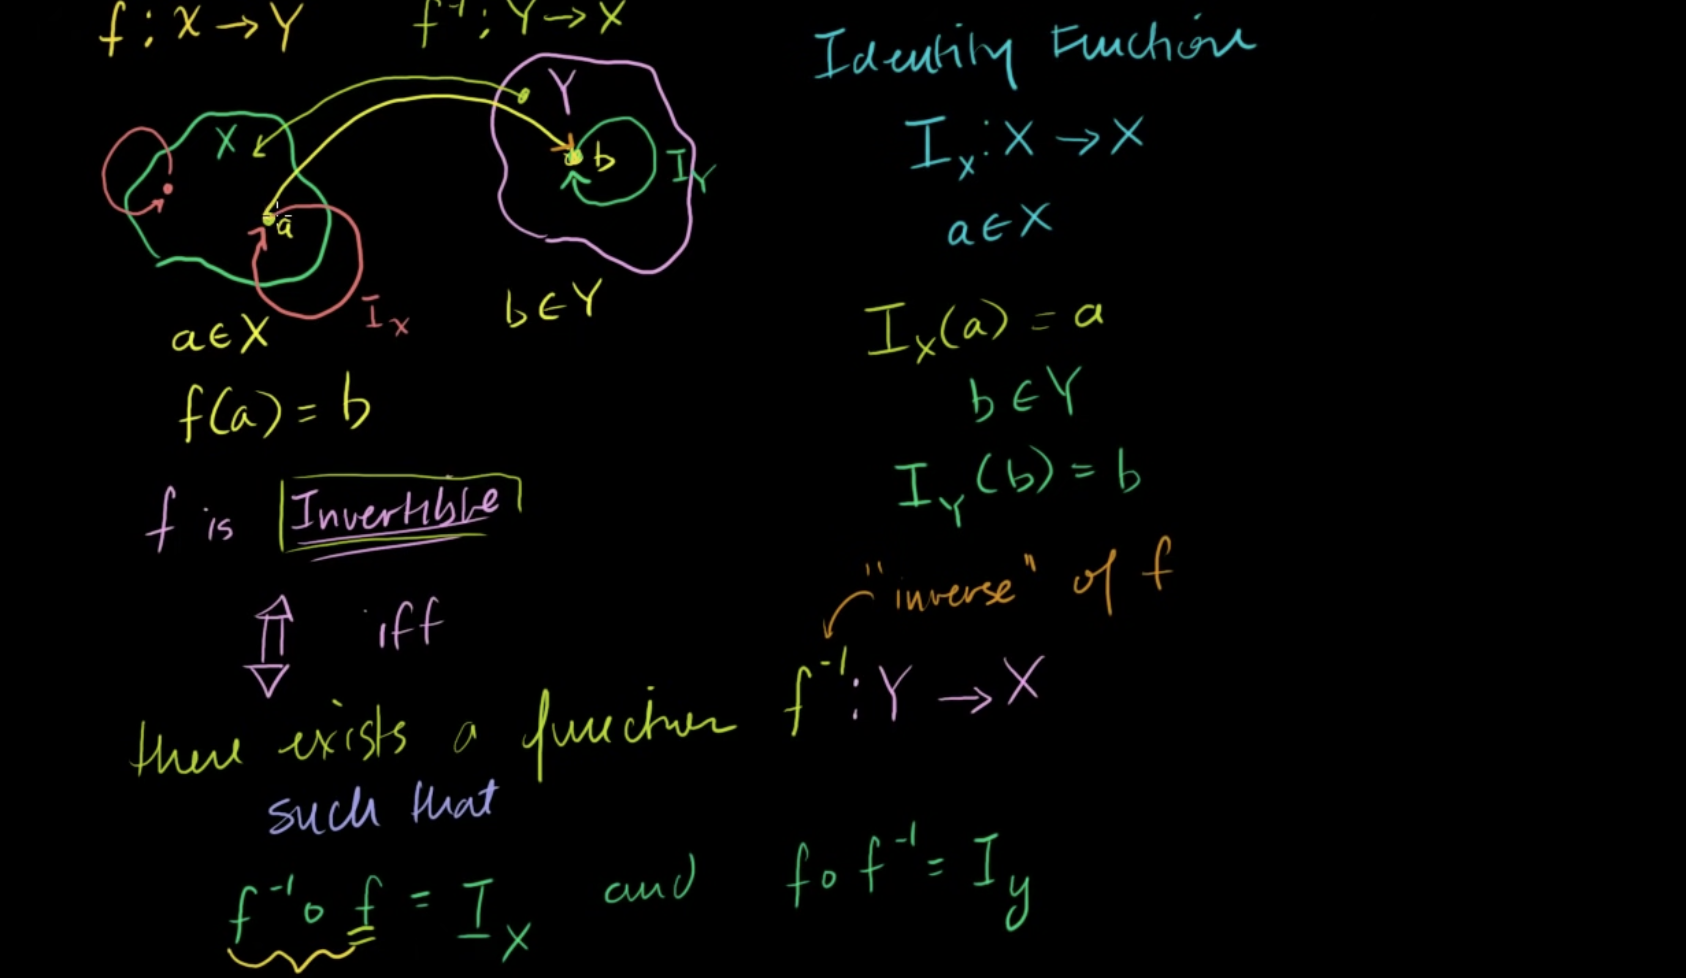 f : X → Y
f⁻¹ : Y → X
X
a
I_X
Y
b
I_Y
a ∈ X
b ∈ Y
f(a) = b
f is Invertible
iff
there exists a function f⁻¹ : Y → X
such that
f⁻¹ ∘ f = I_X and f ∘ f⁻¹ = I_y
Identity Function
I_X : X → X
a ∈ X
I_X(a) = a
b ∈ Y
I_Y(b) = b
"inverse" of f